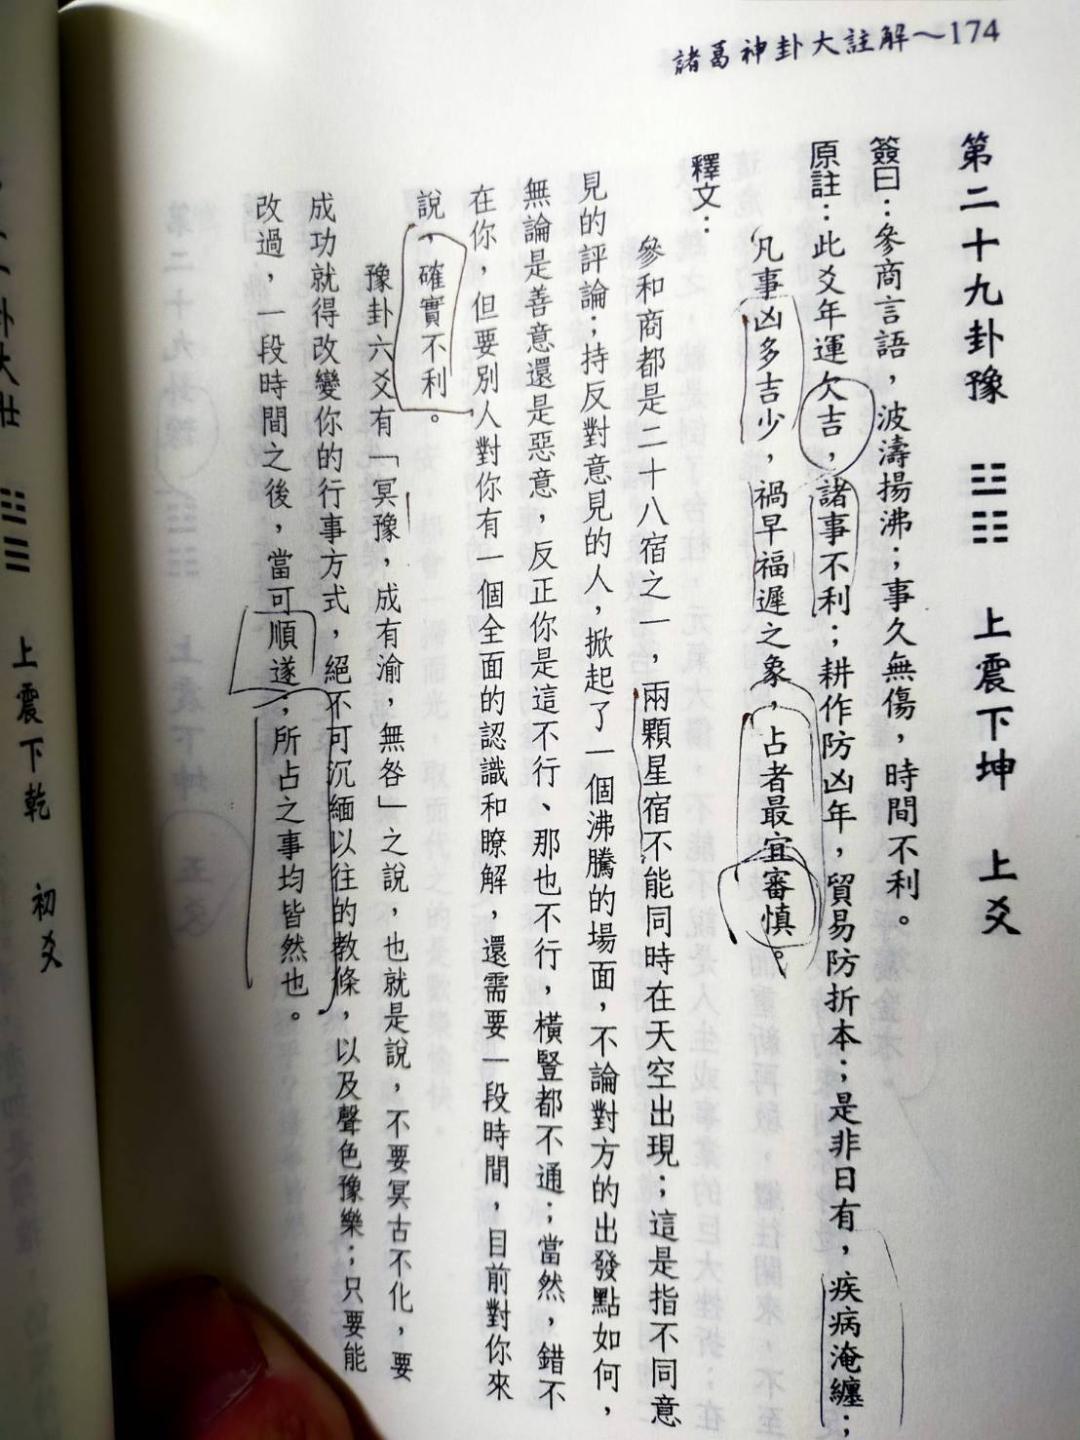 諸葛神卦大註解～174
第二十九卦豫 ䷏ 上震下坤 上爻
簽曰：參商言語，波濤揚沸；事久無傷，時間不利。
原註：此爻年運欠吉，諸事不利；耕作防凶年，貿易防折本；是非日有，疾病淹纏；
凡事凶多吉少，禍早福遲之象，占者最宜審慎。
釋文：
參和商都是二十八宿之一，兩顆星宿不能同時在天空出現；這是指不同意
見的評論；持反對意見的人，掀起了一個沸騰的場面，不論對方的出發點如何，
無論是善意還是惡意，反正你是這不行、那也不行，橫豎都不通；當然，錯不
在你，但要別人對你有一個全面的認識和瞭解，還需要一段時間，目前對你來
說，確實不利。
豫卦六爻有「冥豫，成有渝，無咎」之說，也就是說，不要冥古不化，要
成功就得改變你的行事方式，絕不可沉緬以往的教條，以及聲色豫樂；只要能
改過，一段時間之後，當可順遂；所占之事均皆然也。
卦大壯 ䷡ 上震下乾 初爻